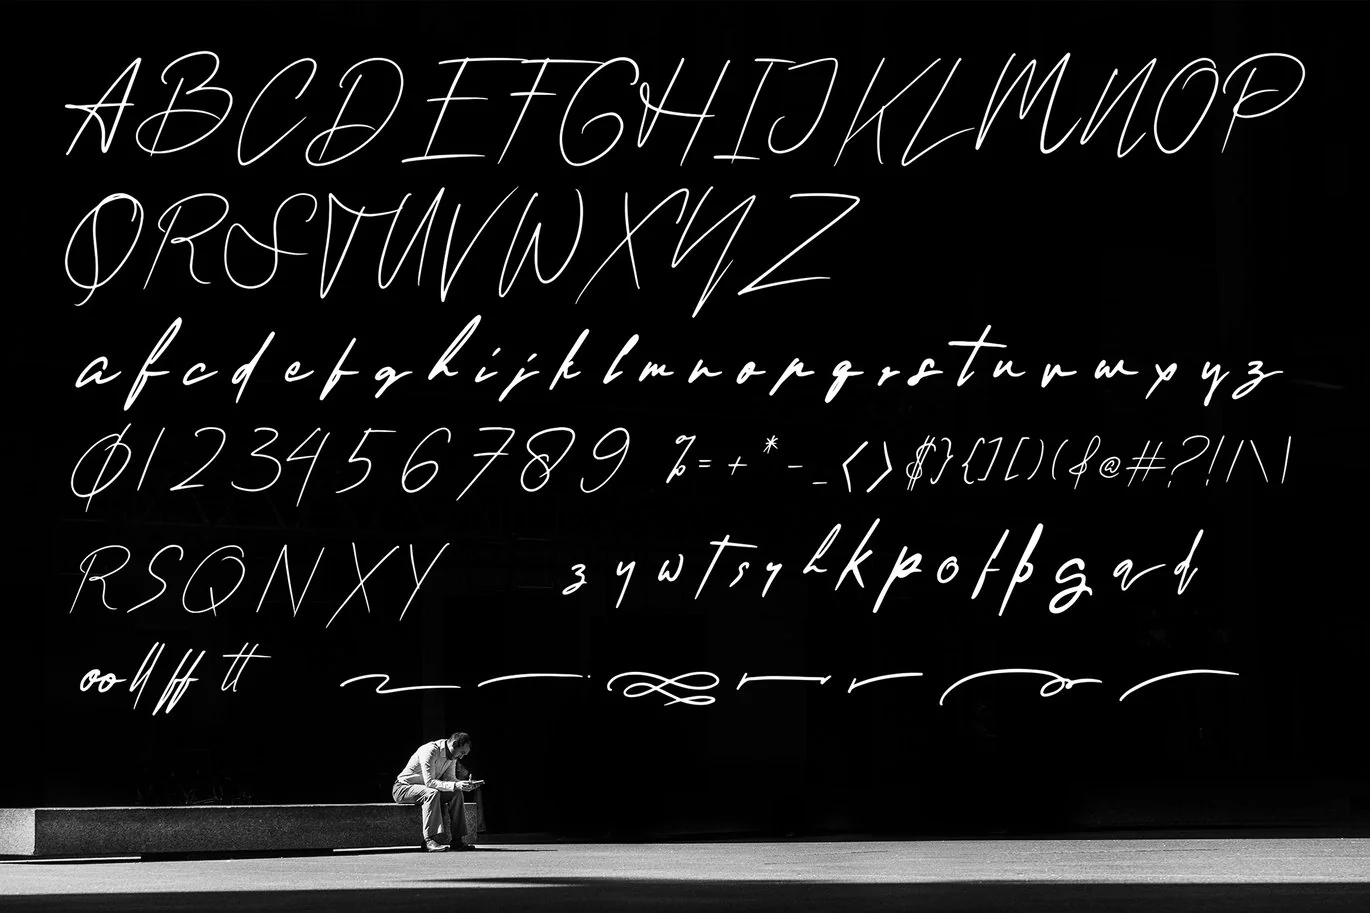 ABCDEFGHIJKLMNOP
QRSTUVWXYZ
a f c d e f g h i j k l m n o p q r s t u v w x y z
0 1 2 3 4 5 6 7 8 9 % = + * - _ < > $ } { ] [ ) ( & @ # ? ! / \ |
R S Q N X Y z y w t s y h k p o f b g a d
oo ll ff tt